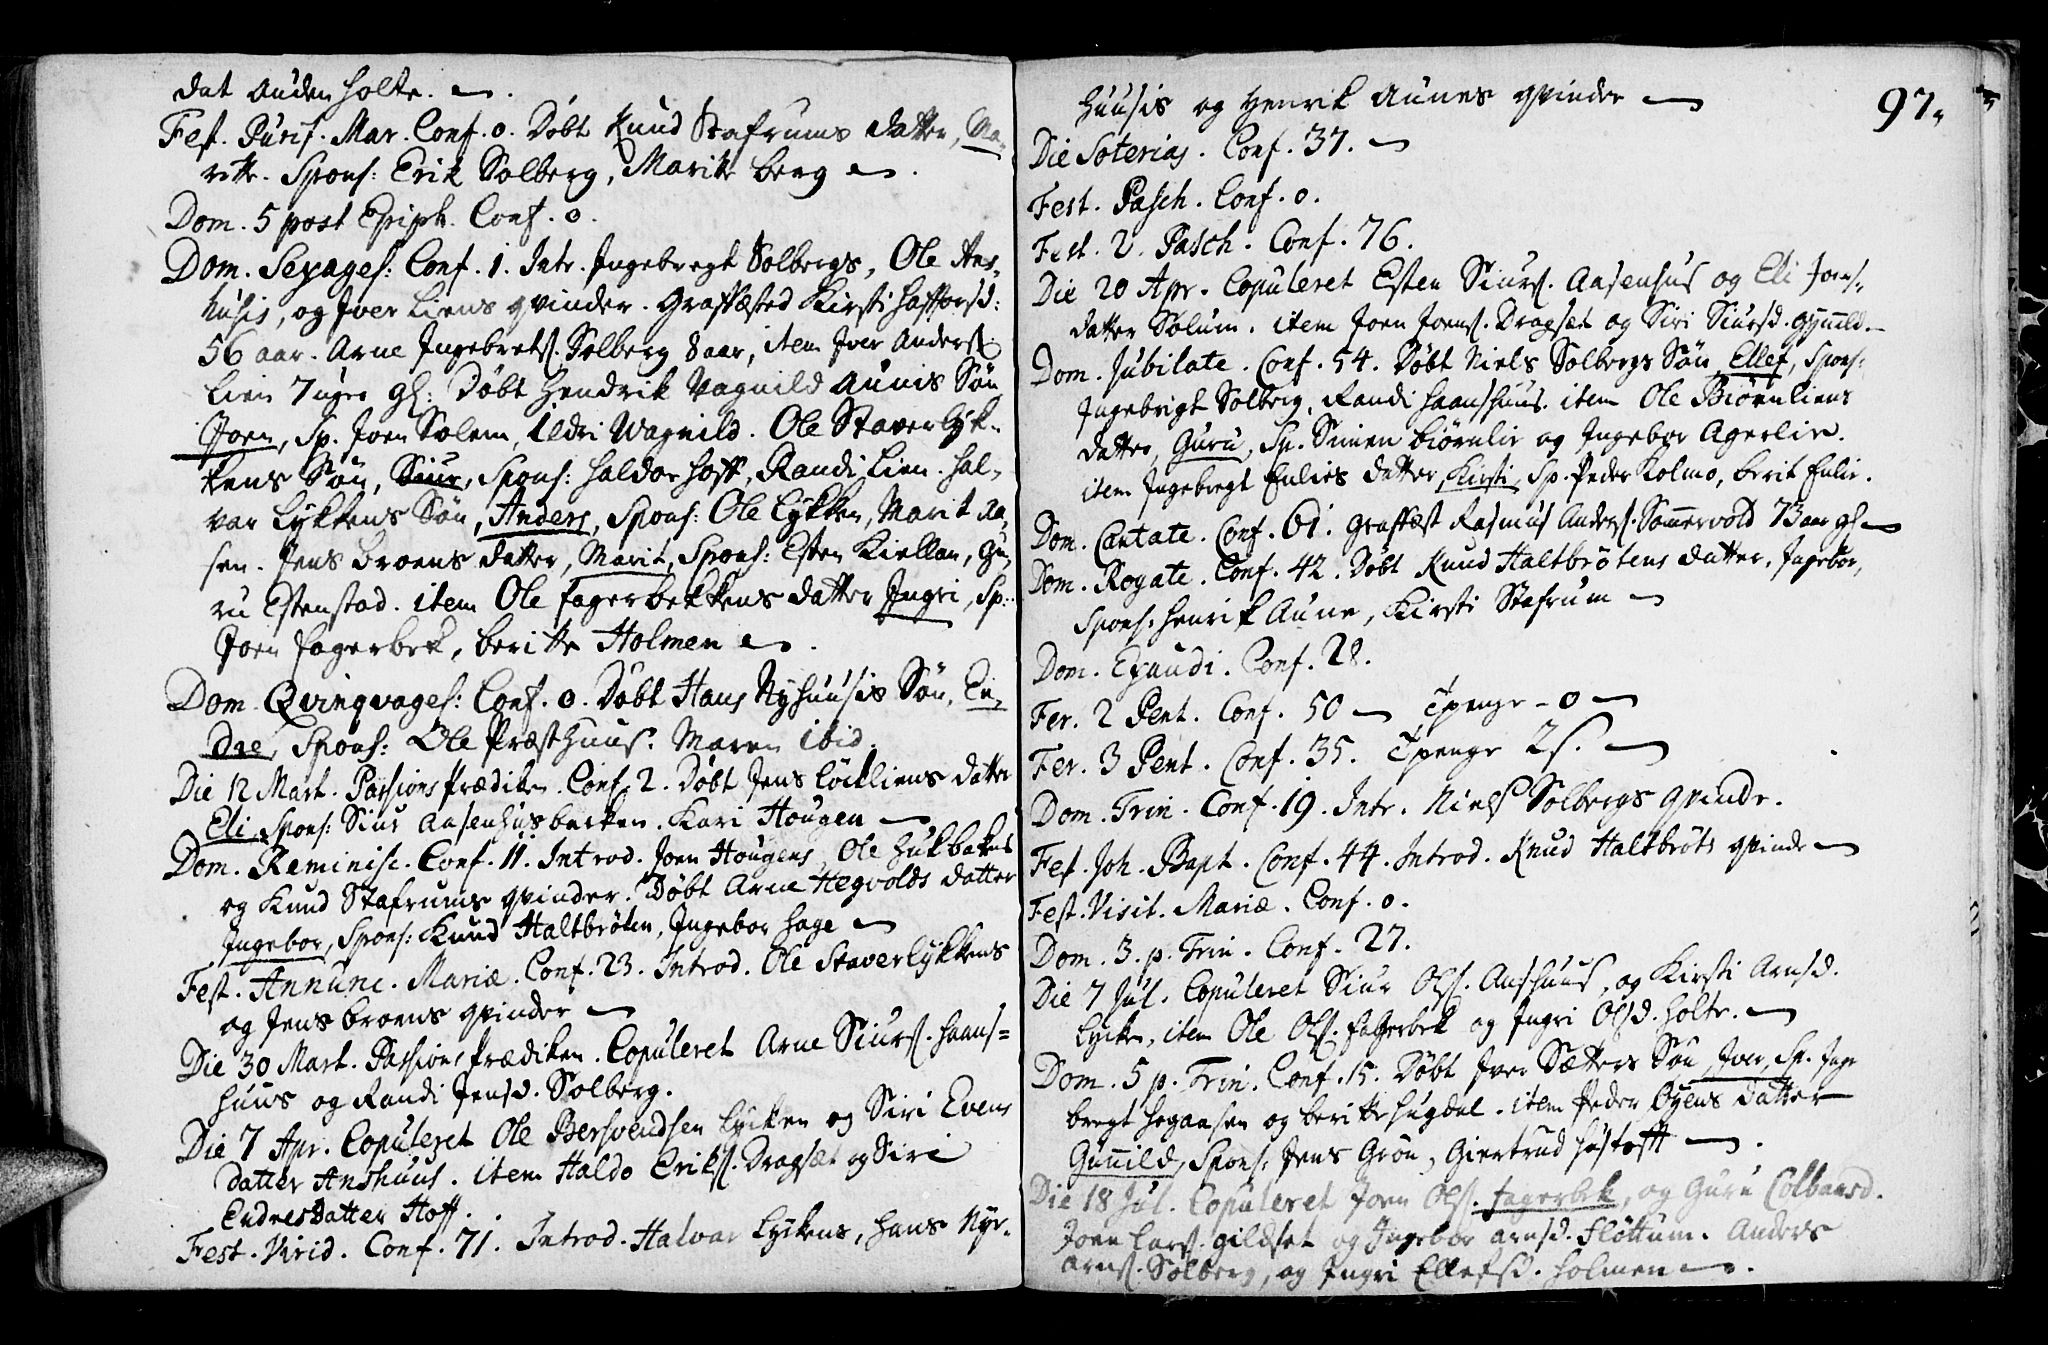 dat Auden Holte.
Fest. Purif. Mar. Conf. 0. Døbt Knud Stafrums datter, Ma-
ritte. Spons: Erik Solberg, Maritte berg
Dom. 5 post Epiph. Conf. 0.
Dom. Sexages: Conf. 1. Intr. Ingebregt Solbergs, Ole Ans-
husis, og Iver Liens qvinder. Graffæsted Kirsti Haftorsd:
56 aar. Arne Ingebrets. Solberg 8 aar, item Iver Anders.
Lien 7 uger gl: Døbt Hendrik Vagnild Aunis Søn
Joen, Sp. Joen Solem, Ildri Wagnild. Ole Staverlyk-
kens Søn, Siur, Spons: Haldor Hoff, Randi Lien. Hal-
var Lykkens Søn, Anders, Spons: Ole Lykken, Marit Aa-
sen. Jens broens datter, Marit, Spons: Esten Kiellan, Gu-
ru Estenstad. item Ole fagerbekkens datter Ingri, Sp:
Joen fagerbek, beritte Holmen
Dom. Qvinqvages: Conf. 0. Døbt Hans Nyhuusis Søn, En-
dre, Spons: Ole Præsthuus. Maren ibid.
Die 12 Mart. Passions Prædiken. Conf. 2. Døbt Jens Löcliens datter
Eli, Spons: Siur Aasenhusbacken. Kari Hougen
Dom. Reminisc. Conf. 11. Introd. Joen Hougens, Ole Hukbakens
og Knud Stafrums qvinder. Døbt Arne Hegvolds datter
Ingebor, Spons: Knud Haltbröten, Ingebor Hage
Fest. Annunc. Mariæ. Conf. 23. Introd. Ole Staverlykkens
og Jens broens qvinder
Die 30 Mart. Passions Prædiken. Copuleret Arne Siurs. Haans=
huus og Randi Jensd. Solberg.
Die 7 Apr. Copuleret Ole Bersvendsen Lycken og Siri Evens
datter Anshuus. item Haldo Eriks. Dragset og Siri
Endresdatter Hoff.
Fest. Virid. Conf. 71. Introd. Halvar Lyckens, Hans Nye-
huusis og Henrik Aunes qvinder
97.
Die Soterias. Conf. 37.
Fest. Pasch. Conf. 0.
Fest. 2. Pasch. Conf. 76.
Die 20 Apr. Copuleret Esten Siurs. Aasenhus og Eli Joens-
datter Solum. item Joen Joens. Dragset og Siri Siursd. Gynild.
Dom. Jubilate. Conf. 54. Døbt Niels Solbergs Søn, Ellef, Spons:
Ingebrigt Solberg, Randi Haanshuus. item Ole Biörnliens
datter, Guru, Sp. Simen Biörnlie og Ingebor Agerlie.
item Ingebregt Enlies datter, Kirsti, Sp. Peder Kolmo, berit Enlie.
Dom. Cantate. Conf. 61. Graffæst Rasmus Anders. Somervold 73 aar gl
Dom. Rogate. Conf. 42. Døbt Knud Haltbrötens datter, Ingebor,
Spons: Henrik Aune, Kirsti Stafrum
Dom. Exaudi. Conf. 28.
Fer. 2 Pent. Conf. 50 Tpenge - 0
Fer. 3 Pent. Conf. 35. Tpenge 2 s.
Dom. Trin. Conf. 19. Intr. Niels Solbergs qvinde.
Fest. Joh. Bapt. Conf. 44. Introd. Knud Haltbröts qvinde
Fest. Visit. Mariæ. Conf. 0.
Dom. 3. p. Trin. Conf. 27.
Die 7 Jul. Copuleret Siur Ols. Anshuus, og Kirsti Arnsd.
Lycken, item Ole Ols. fagerbek og Ingri Olsd. Holte.
Dom. 5 p. Trin. Conf. 15. Døbt Iver Sætters Søn, Iver, Sp. Inge
bregt Hogaasen og beritte Hugdal. item Peder Øyens datter
Gunild, Spons: Jens Grön, Giertrud
Die 18 Jul. Copuleret Joen Ols. fagerbek, og Guru Colbansd.
Joen Lars. Gildset og Ingebor Arnsd. Flöttum. Anders
Arns. Solberg, og Ingri Ellefsd. Holmen